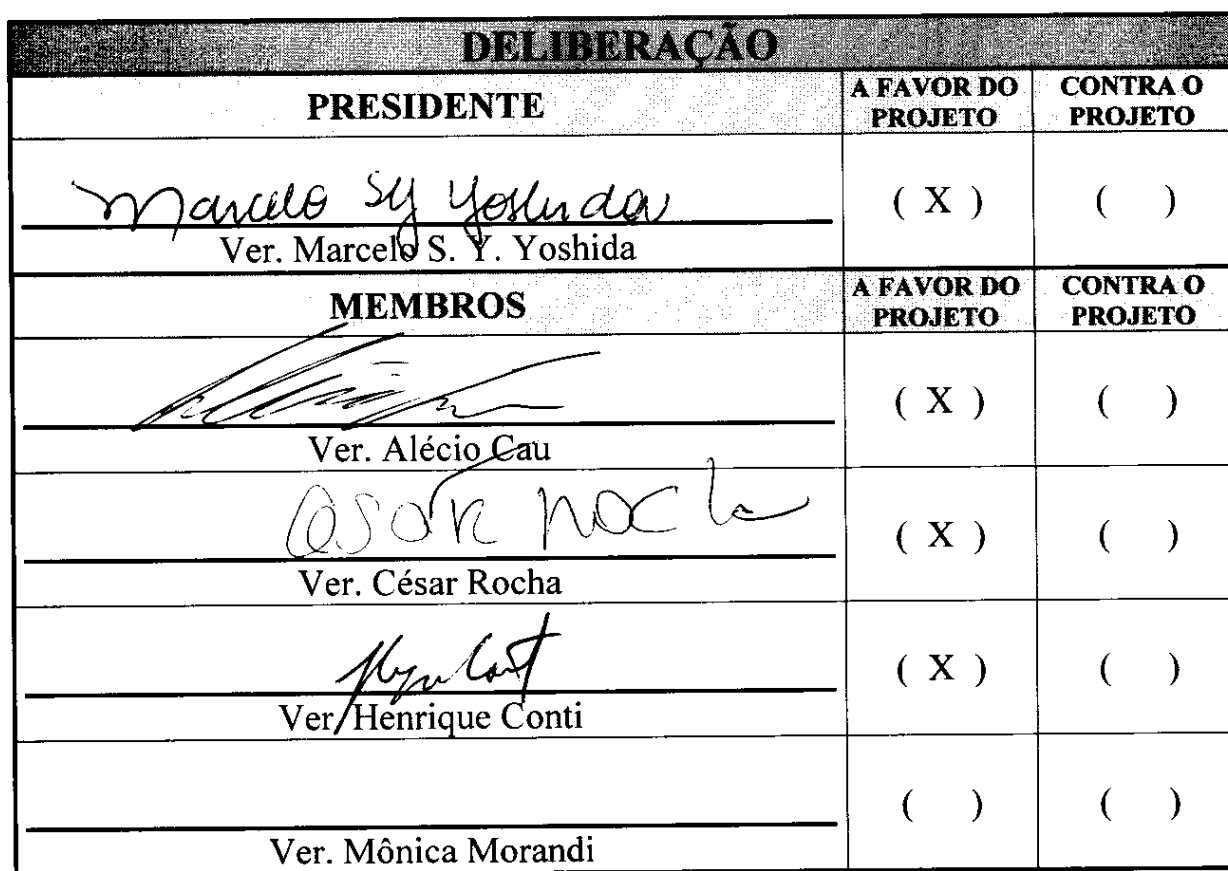 DELIBERAÇÃO
PRESIDENTE
A FAVOR DO PROJETO
CONTRA O PROJETO
Marcelo SY Yoshida
( X )
( )
Ver. Marcelo S. Y. Yoshida
MEMBROS
A FAVOR DO PROJETO
CONTRA O PROJETO
( X )
( )
Ver. Alécio Cau
César Rocha
( X )
( )
Ver. César Rocha
( X )
( )
Ver. Henrique Conti
( )
( )
Ver. Mônica Morandi